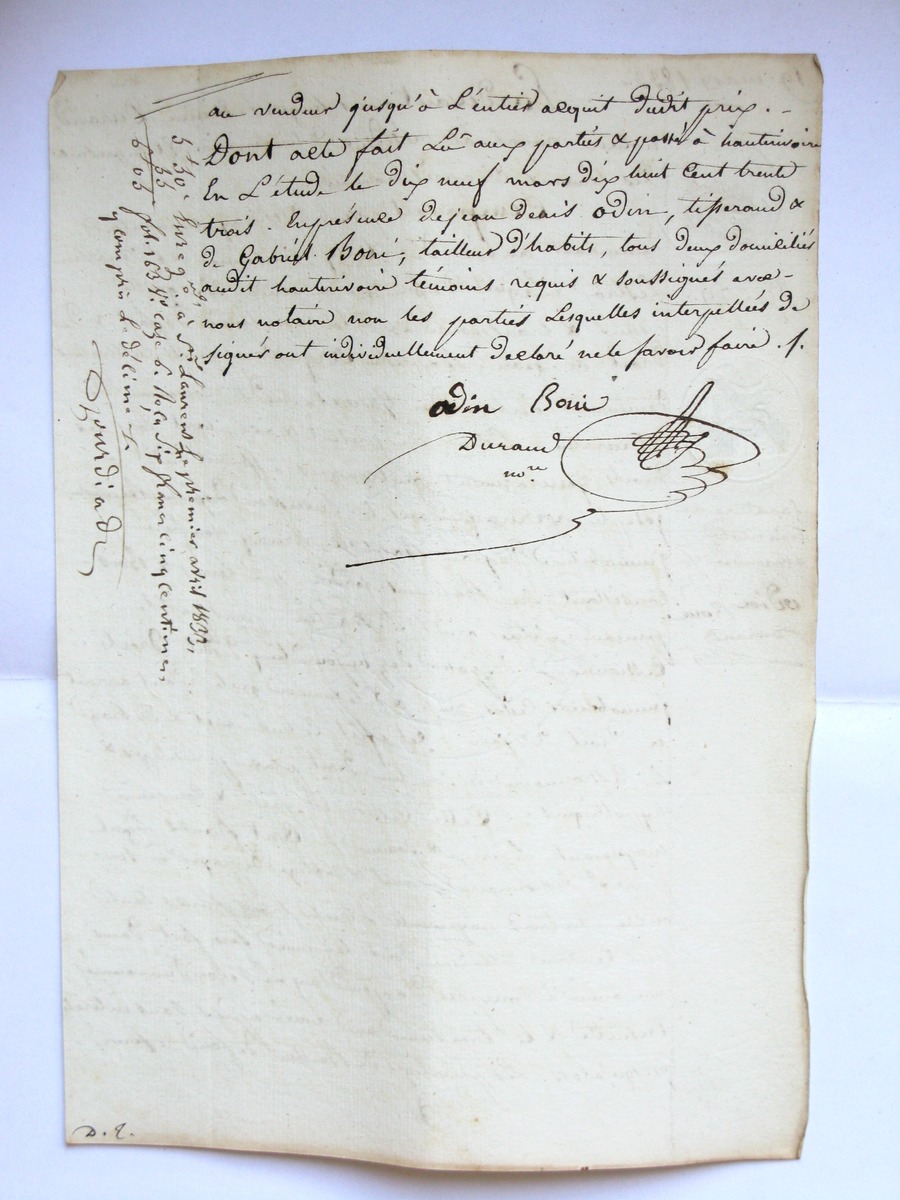 au vendeur jusqu'à L'entier acquit dudit prix . -
Dont acte fait Lû aux parties & passé à hauterivoire
En L'étude le dix neuf mars dix huit Cent trente
trois . En présence de jean denis odin, tisserand &
de Gabriel Boiri, tailleur d'habits, tous deux domiciliés
audit hauterivoire témoins requis & soussignés avec -
nous notaire non les parties Lesquelles interpellées de
signer ont individuellement declaré ne le savoir faire ./.
odin Boiri
Durand
nore
5 50 c Enregré à St Laurent Le premier avril 1833,
55 fol. 163 Vo case 6. Reçu six francs cinq centimes
6 05 y compris Le décime
D. E.